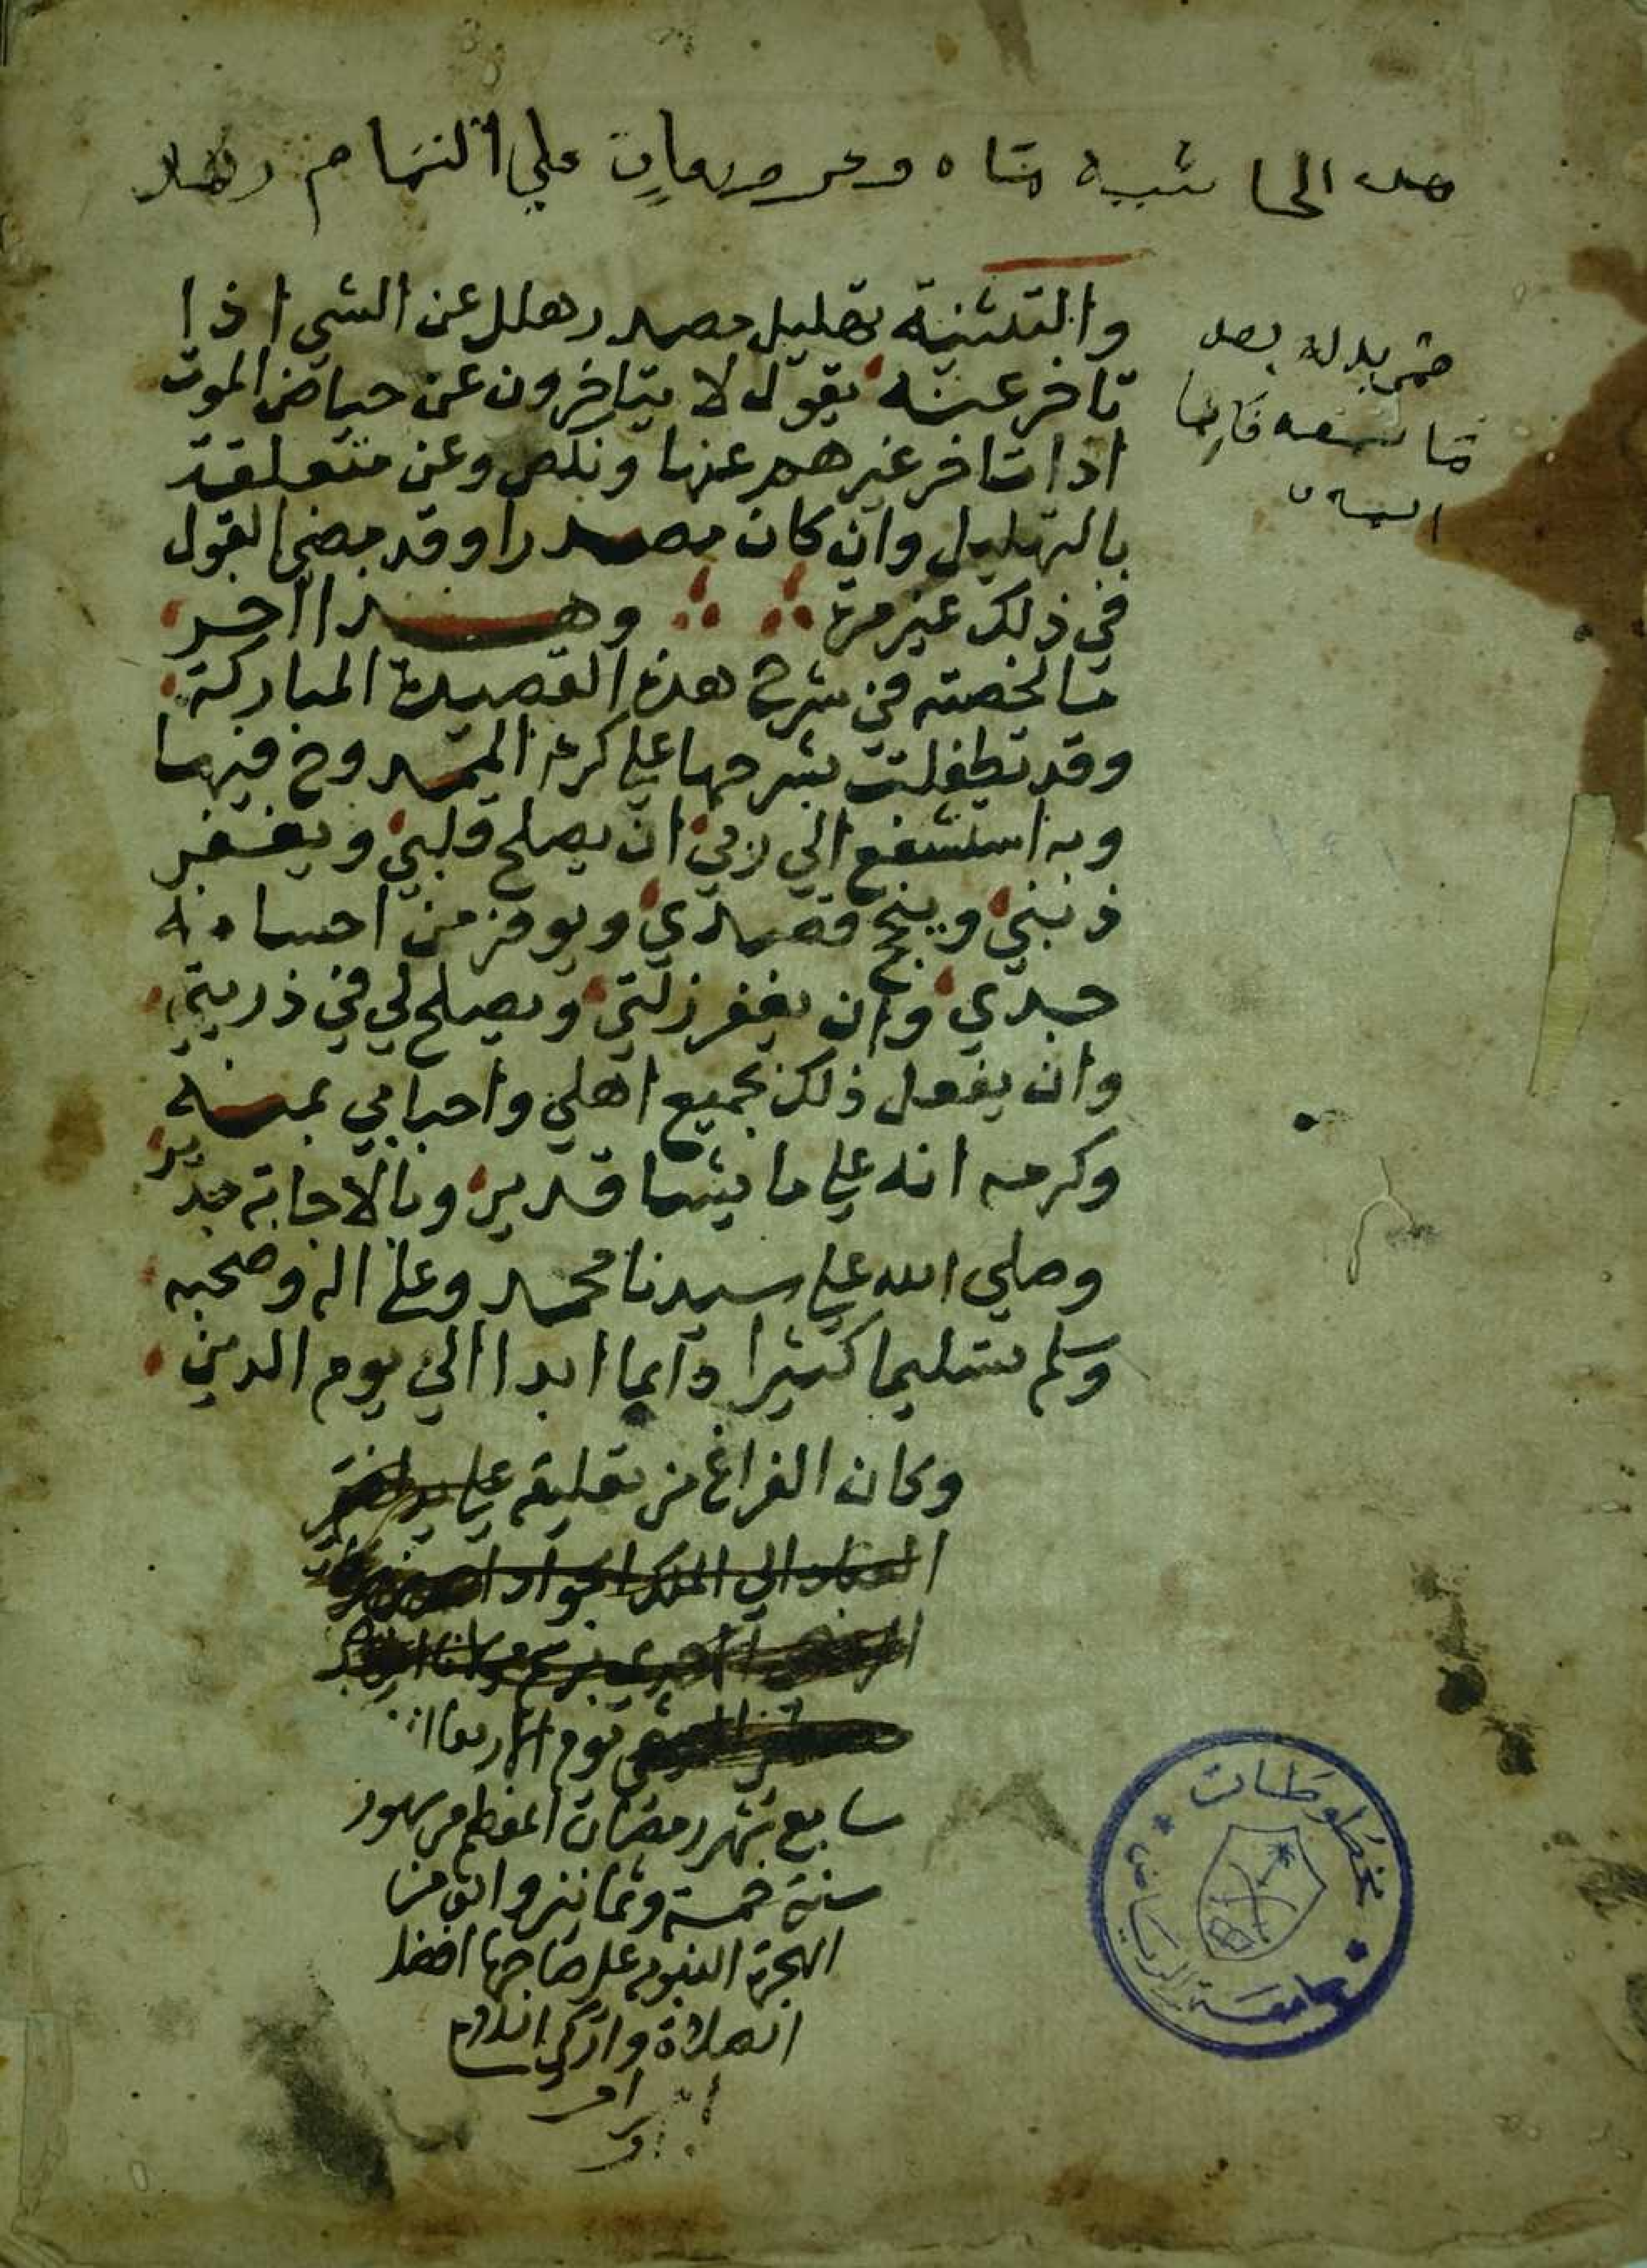 هده الحاشية علي التمام
والتثنية تهليل مصدر هلل عن الشي اذا
تاخر عنه يقول لا يتاخرون عن حياض الموت
اذا تاخر غيرهم عنها ونكص وعن متعلقة
بالتهليل وان كان مصدرا وقد مضي القول
في ذلك غير مرة وهذا اخر
ما لخصته في شرح هذه القصيدة المباركة
وقد تطفلت بشرحها علي كرم الممدوح فيها
وبه استشفع الي ربي ان يصلح قلبي ويغفر
ذنبي وينجح قصدي ويوفر من احسانه
جدي وان يغفر زلتي ويصلح لي في ذريتي
وان يفعل ذلك بجميع اهلي واحبابي بمنه
وكرمه انه علي ما يشا قدير وبالاجابة جدير
وصلي الله علي سيدنا محمد وعلي اله وصحبه
وسلم تسليما كثيرا دايما ابدا الي يوم الدين
وكان الفراغ من تعليقه علي يد افقر
العباد الي الملك الجواد
يوم الاربعا
سابع شهر رمضان المعظم من شهور
سنة خمسة وثمانين والف من
الهجرة النبوية علي صاحبها افضل
الصلاة وازكي السلام
مخطوطات
جامعة الرياض